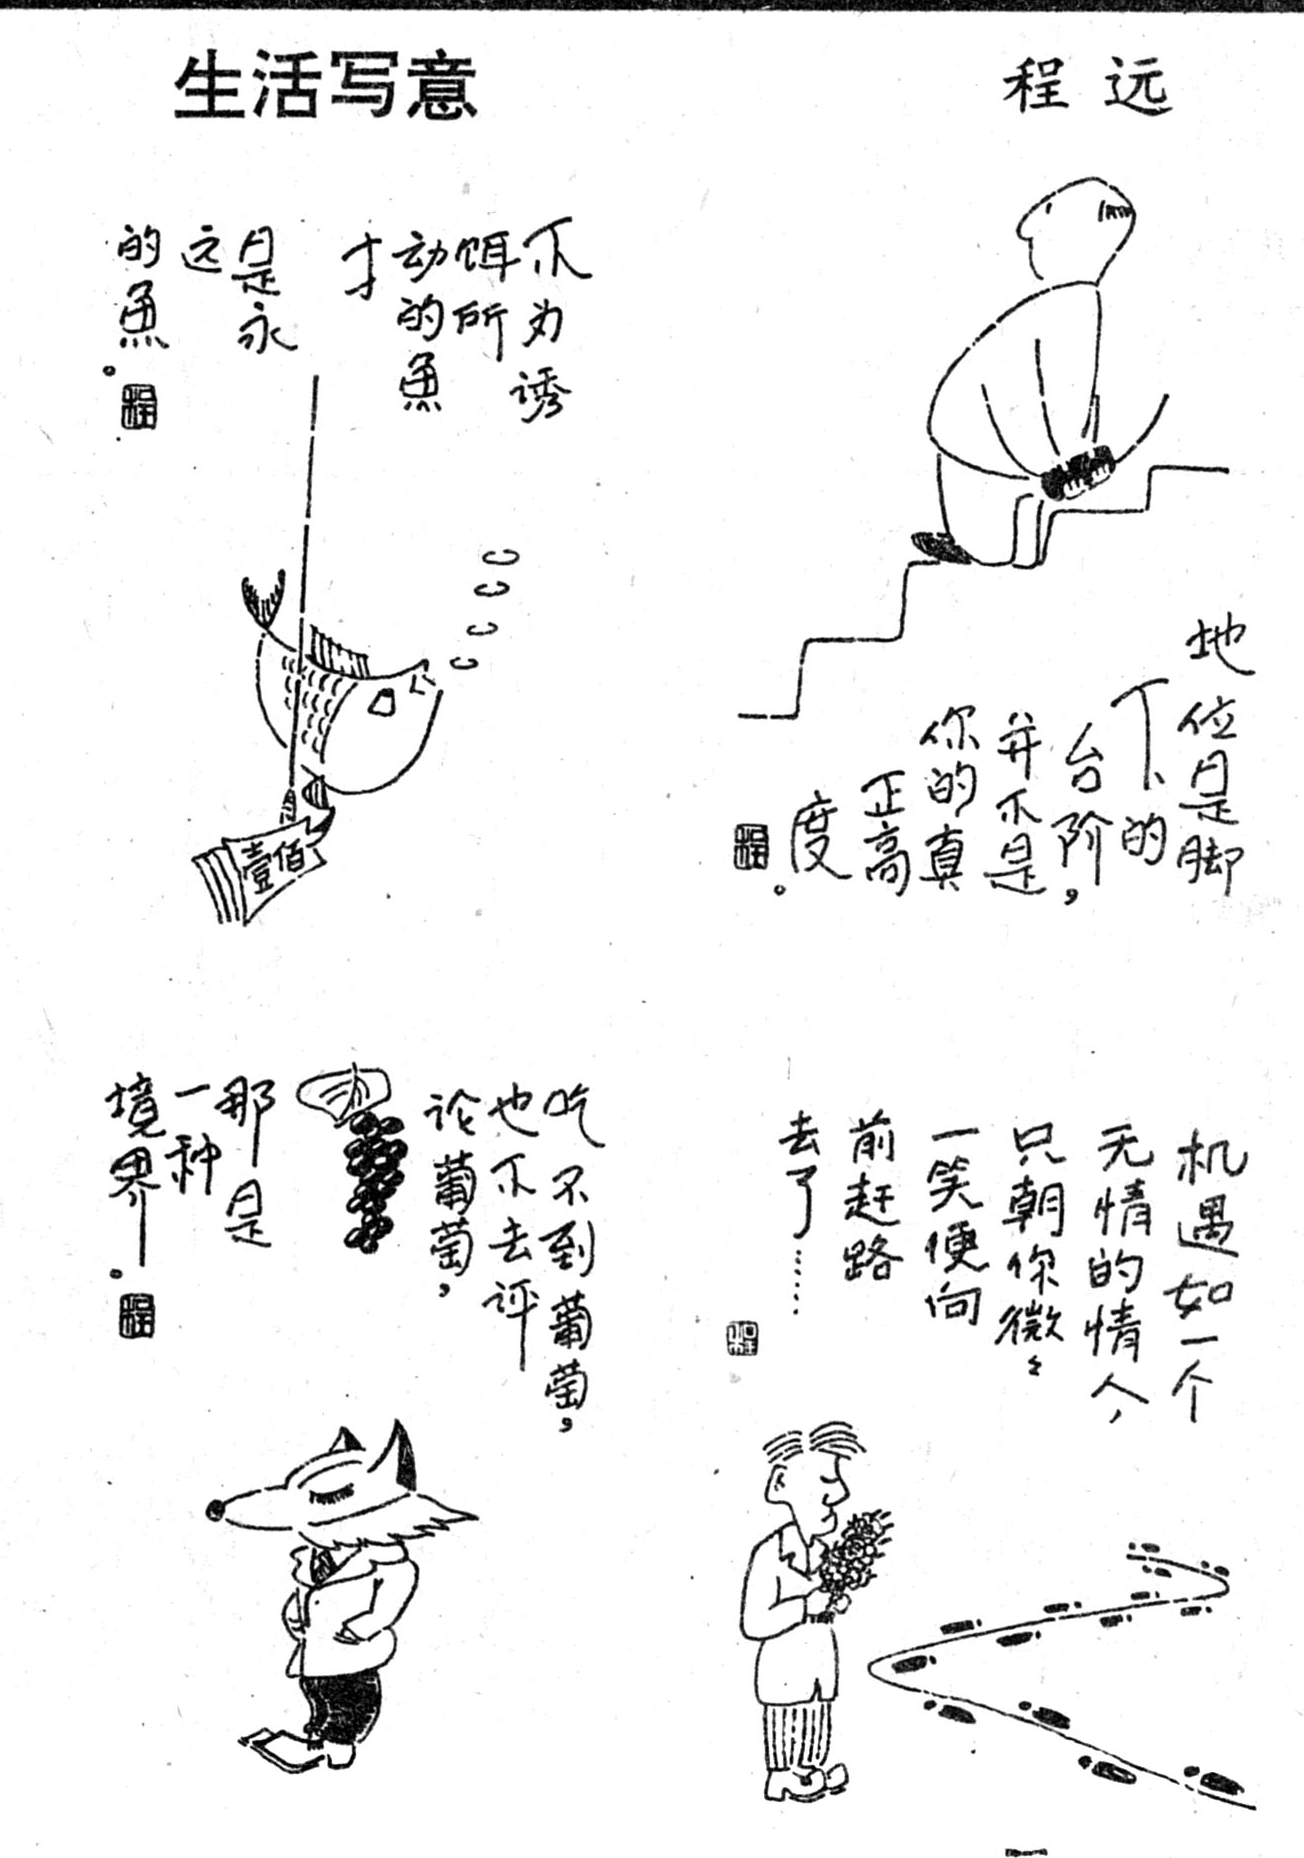 生活写意
程远
不为诱
饵所
动的鱼
才
是永
远
的鱼。
程
壹佰
地位是脚
下的
台阶，
并不是
你的真
正高
度。
程
吃不到葡萄，
也不去评
论葡萄，
那是
一种
境界。
程
机遇如一个
无情的情人，
只朝你微々
一笑便向
前赶路
去了……
程